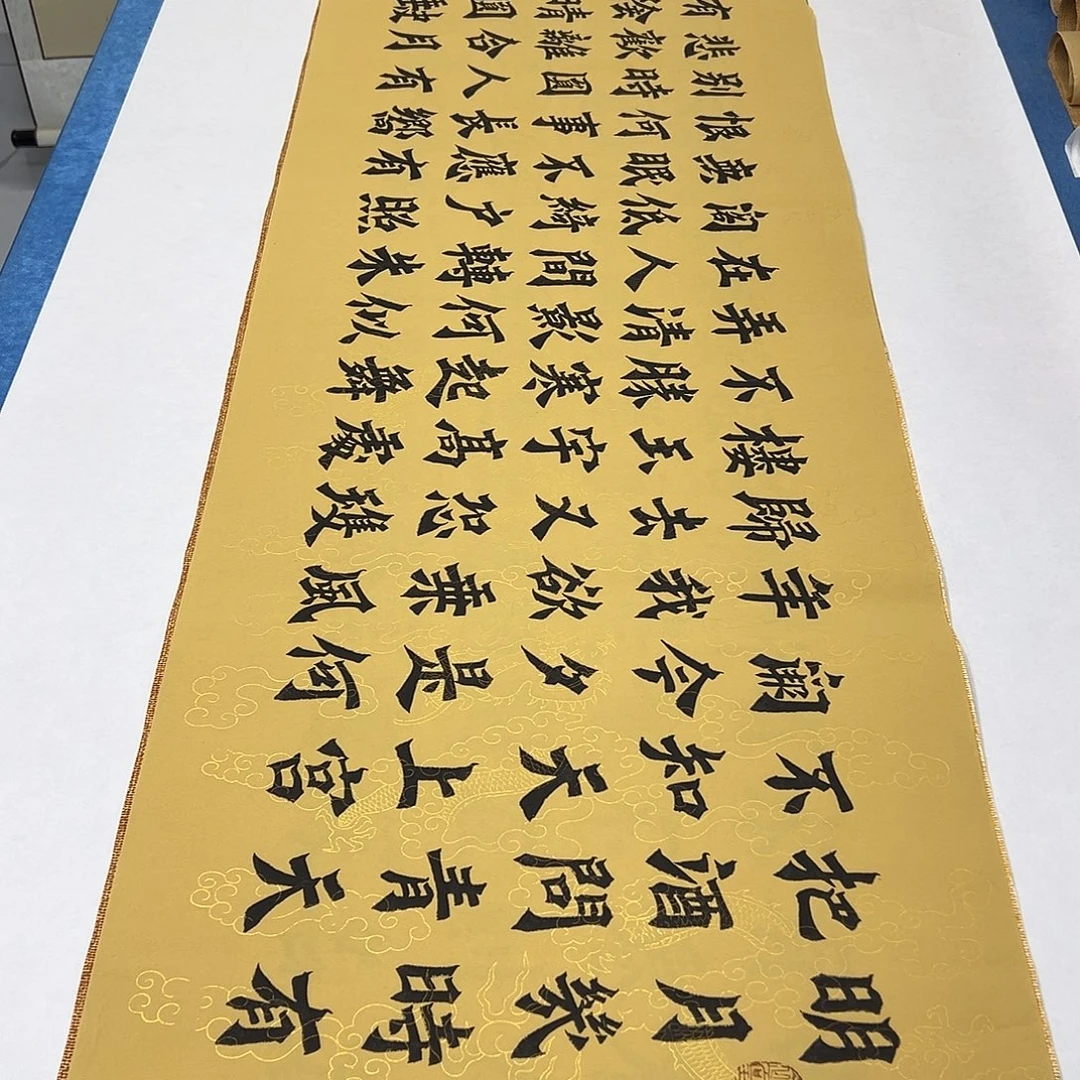 明月幾時有
把酒問青天
不知天上宮
闕今夕是何
年我欲乘風
歸去又恐瓊
樓玉宇高處
不勝寒起舞
弄清影何似
在人間轉朱
閣低綺户照
無眠不應有
恨何事長嚮
别時圓人有
悲歡離合月
有陰晴圓缺